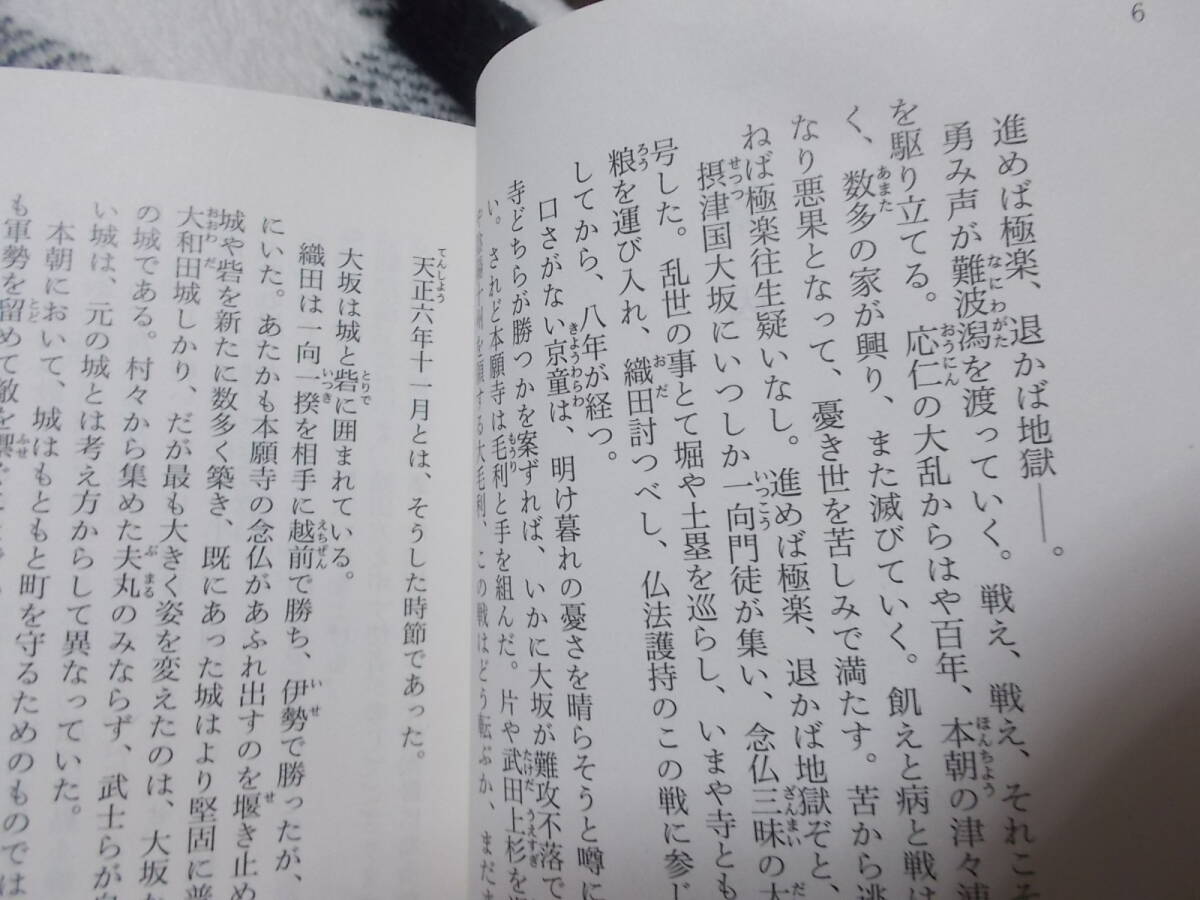 6
進めば極楽、退かば地獄――。
勇み声が難波潟を渡っていく。戦え、戦え、それこそ
を駆り立てる。応仁の大乱からはや百年、本朝の津々浦
く、数多の家が興り、また滅びていく。飢えと病と戦は
なり悪果となって、憂き世を苦しみで満たす。苦から逃
ねば極楽往生疑いなし。進めば極楽、退かば地獄ぞと、
摂津国大坂にいつしか一向門徒が集い、念仏三昧の大
号した。乱世の事とて堀や土塁を巡らし、いまや寺とも
粮を運び入れ、織田討つべし、仏法護持のこの戦に参じ
してから、八年が経つ。
口さがない京童は、明け暮れの憂さを晴らそうと噂に
寺どちらが勝つかを案ずれば、いかに大坂が難攻不落で
い。されど本願寺は毛利と手を組んだ。片や武田上杉を
州を領する大毛利、この戦はどう転ぶか、まだま
天正六年十一月とは、そうした時節であった。
大坂は城と砦に囲まれている。
織田は一向一揆を相手に越前で勝ち、伊勢で勝ったが、
にいた。あたかも本願寺の念仏があふれ出すのを堰き止め
城や砦を新たに数多く築き、既にあった城はより堅固に普
大和田城しかり、だが最も大きく姿を変えたのは、大坂
の城である。村々から集めた夫丸のみならず、武士らが
い城は、元の城とは考え方からして異なっていた。
本朝において、城はもともと町を守るためのものでは
も軍勢を留めて敵を